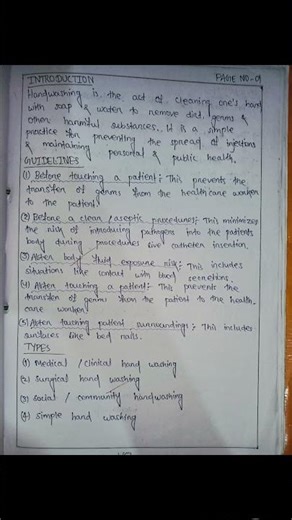 INTRODUCTION PAGE NO-01
Handwashing is the act of cleaning one's hand
with soap & water to remove dirt, germs &
other harmful substances. It is a simple
practice for preventing the spread of infections
& maintaining personal & public health.
GUIDELINES
(1) Before touching a patient: This prevents the
transfer of germs from the healthcare worker
to the patient.
(2) Before a clean/aseptic procedures: This minimizes
the risk of introducing pathogens into the patients
body during procedures like catheter insertion.
(3) After body fluid exposure risk: This includes
situations like contact with blood secretions.
(4) After touching a patient: This prevents the
transfer of germs from the patient to the health-
care worker
(5) After touching patient surroundings: This includes
surfaces like bed rails.
TYPES
(1) Medical / clinical hand washing
(2) Surgical hand washing
(3) Social / community handwashing
(4) Simple hand washing